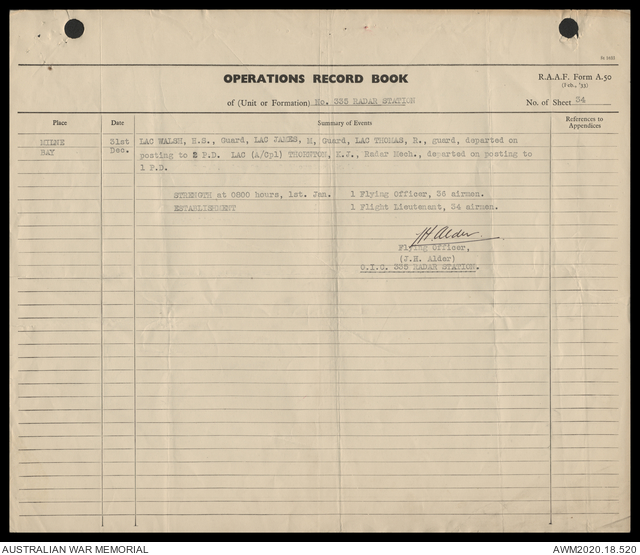 OPERATIONS RECORD BOOK
R.A.A.F. Form A.50
(Feb., '33)
of (Unit or Formation) No. 335 RADAR STATION
No. of Sheet 34
Place Date Summary of Events References to Appendices
MILNE BAY 31st Dec. LAC WALSH, H.S., Guard, LAC JAMES, M, Guard, LAC THOMAS, R., guard, departed on
posting to 2 P.D. LAC (A/Cpl) THORNTON, K.J., Radar Mech., departed on posting to
1 P.D.
STRENGTH at 0800 hours, 1st. Jan. 1 Flying Officer, 36 airmen.
ESTABLISHMENT 1 Flight Lieutenant, 34 airmen.
JH. Alder
Flying Officer,
(J.H. Alder)
O.I.C. 335 RADAR STATION.
AUSTRALIAN WAR MEMORIAL
AWM2020.18.520